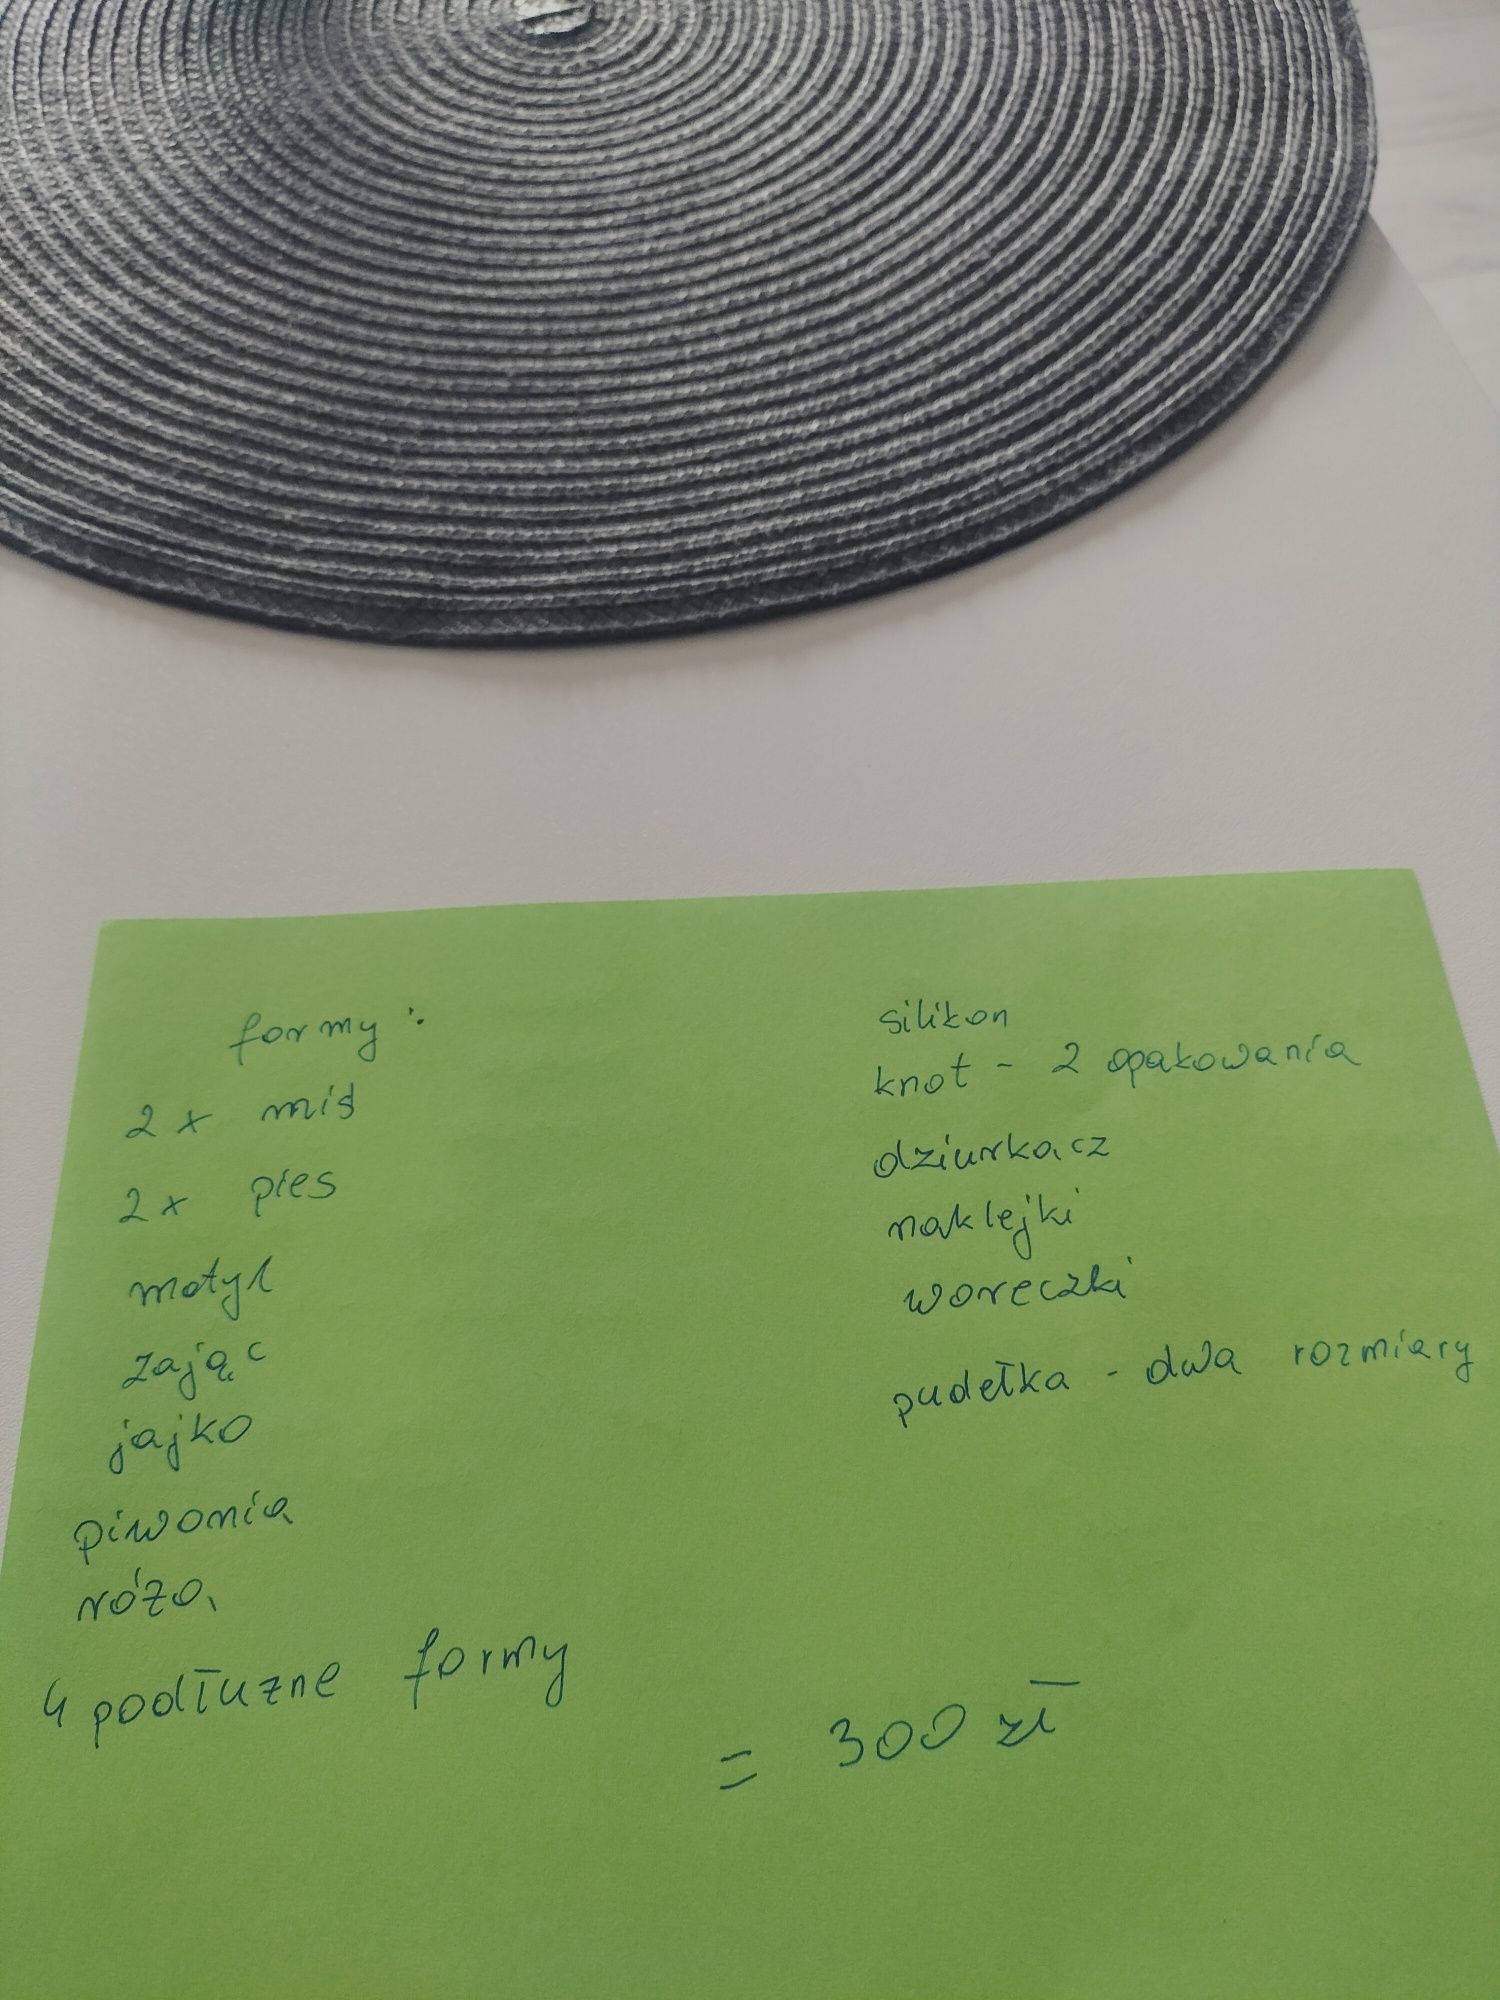 formy:
2 x miś
2 x pies
motyl
zając
jajko
piwonia
róża
4 podłużne formy
silikon
knot - 2 opakowania
dziurkacz
naklejki
woreczki
pudełka - dwa rozmiary
= 300 zł